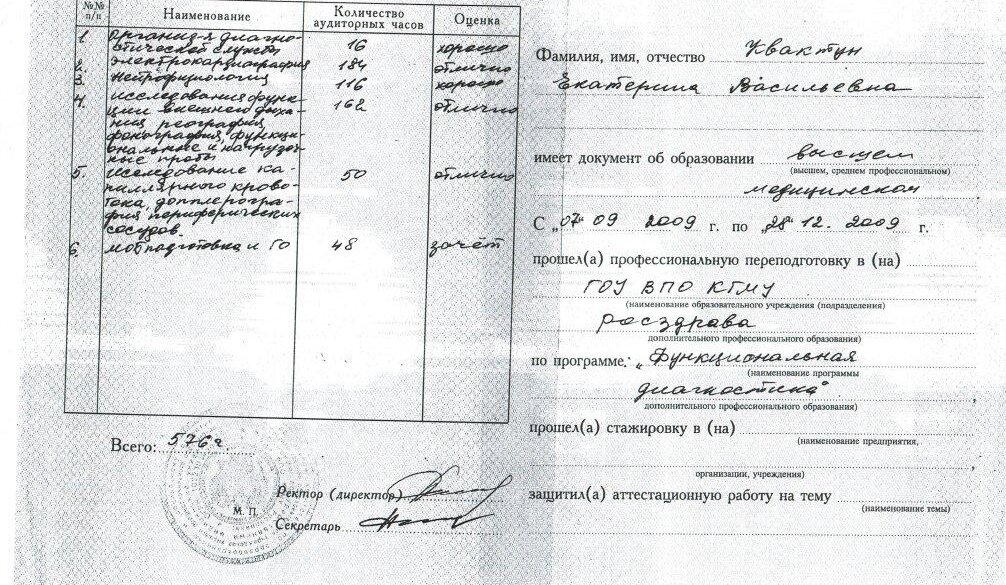 №№ п/п Наименование Количество аудиторных часов Оценка
1. Организ-я диагно- 16 хорошо
стической службы
2. Электрокардиография 184 отлично
3. Нейрофизиология 116 хорошо
4. исследования функ- 162 отлично
ции внешнего дыха-
ния, реография,
фонография, функци-
ональные и нагрузоч-
ные пробы
5. исследование ка- 50 отлично
пиллярного крово-
тока, допплерогра-
фия периферических
сосудов.
6. мобподготовка и ГО 48 зачёт
Всего: 576 ч.
Ректор (директор)
М. П.
Секретарь
Фамилия, имя, отчество Квактун
Екатерина Васильевна
имеет документ об образовании высшем
(высшем, среднем профессиональном)
медицинском
С „07" 09 2009 г. по „28" 12. 2009 г.
прошел(а) профессиональную переподготовку в (на)
ГОУ ВПО КГМУ
(наименование образовательного учреждения (подразделения)
Росздрава
дополнительного профессионального образования)
по программе: „Функциональная
(наименование программы
диагностика"
дополнительного профессионального образования)
прошел(а) стажировку в (на)
(наименование предприятия,
организации, учреждения)
защитил(а) аттестационную работу на тему
(наименование темы)